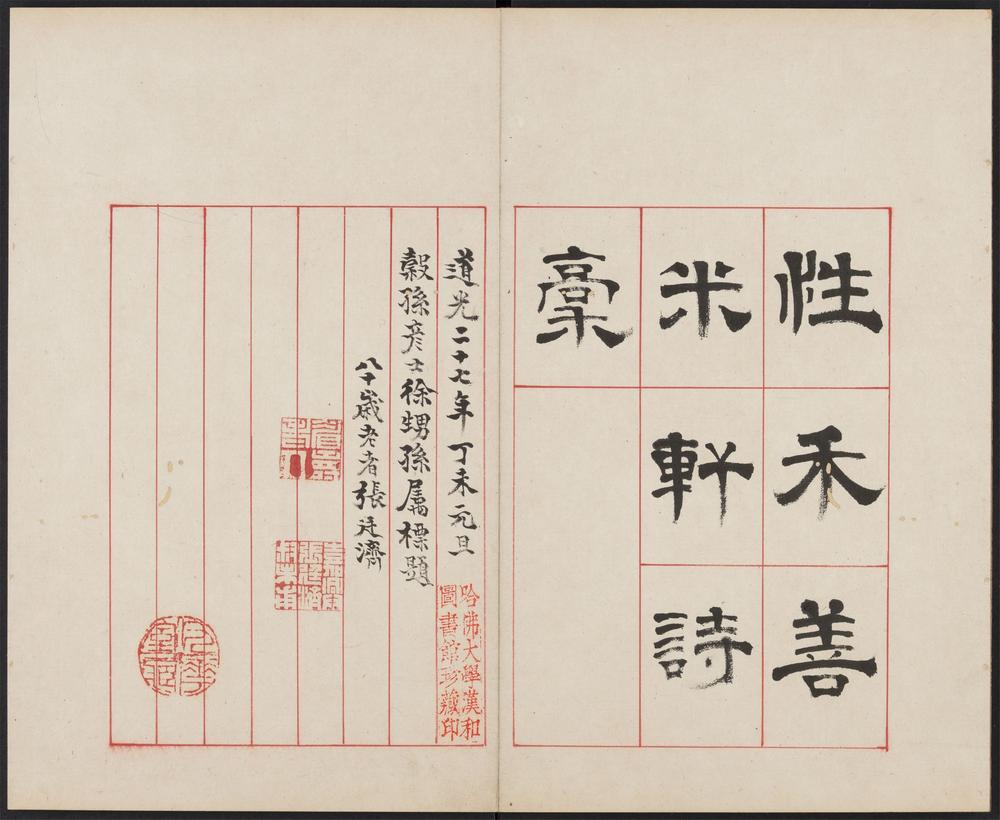 性禾善
米軒詩
稾
道光二十七年丁未元旦
穀孫彥士徐甥孫屬標題
八十歲老者張廷濟
哈佛大學漢和
圖書館珍藏印